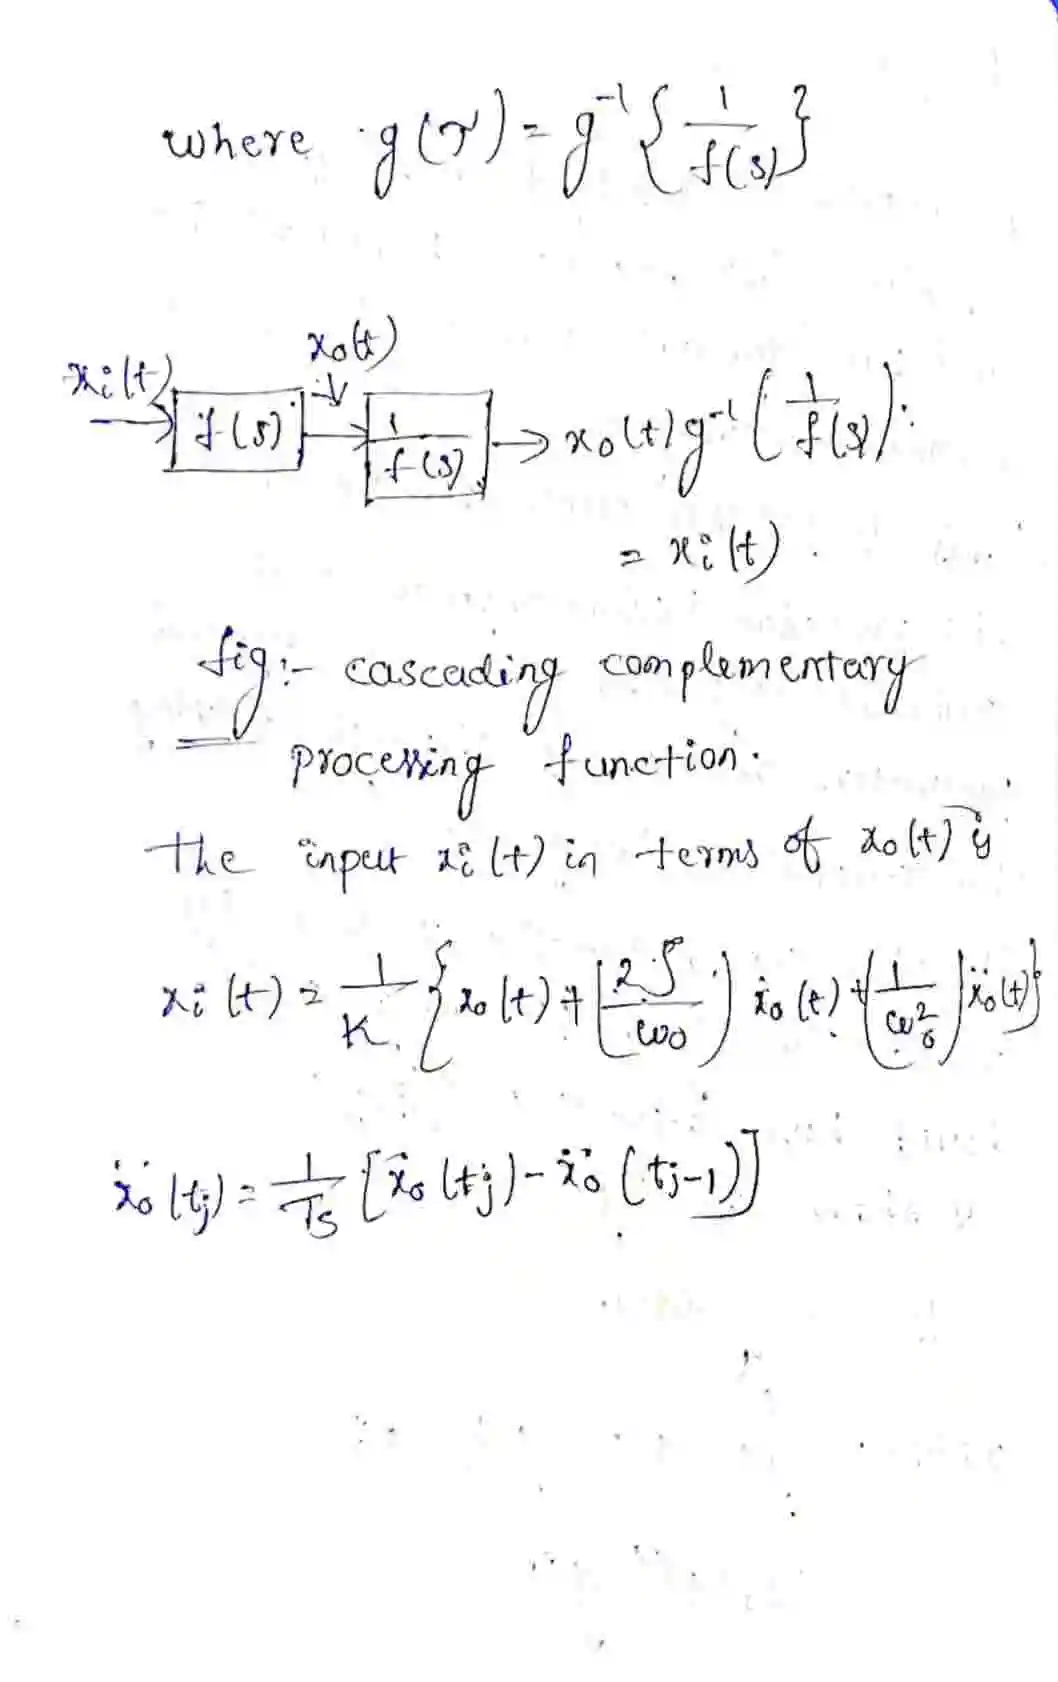 where g(τ) = g⁻¹ { 1 / f(s) }
xi(t) x₀(t)
f(s) 1 / f(s) x₀(t) g⁻¹ ( 1 / f(s) ).
= xi(t).
fig:- cascading complementary
processing function.
The input xi(t) in terms of x₀(t) is
xi(t) = 1/K { x₀(t) + ( 2ζ / ω₀ ) ẋ₀(t) + ( 1 / ω₀² ) ẍ₀(t) }
ẍ₀(tj) = 1/Ts [ ẋ₀(tj) - ẋ₀(tj-1) ]